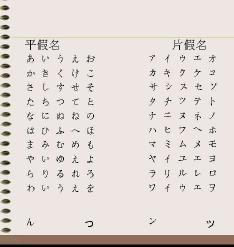 平假名 片假名
あ い う え お ア イ ウ エ オ
か き く け こ カ キ ク ケ コ
さ し す せ そ サ シ ス セ ソ
た ち つ て と タ チ ツ テ ト
な に ぬ ね の ナ ニ ヌ ネ ノ
は ひ ふ へ ほ ハ ヒ フ ヘ ホ
ま み む め も マ ミ ム メ モ
や い ゆ え よ ヤ イ ユ エ ヨ
ら り る れ ろ ラ リ ル レ ロ
わ い う え を ワ イ ウ エ ヲ
ん っ ン ッ